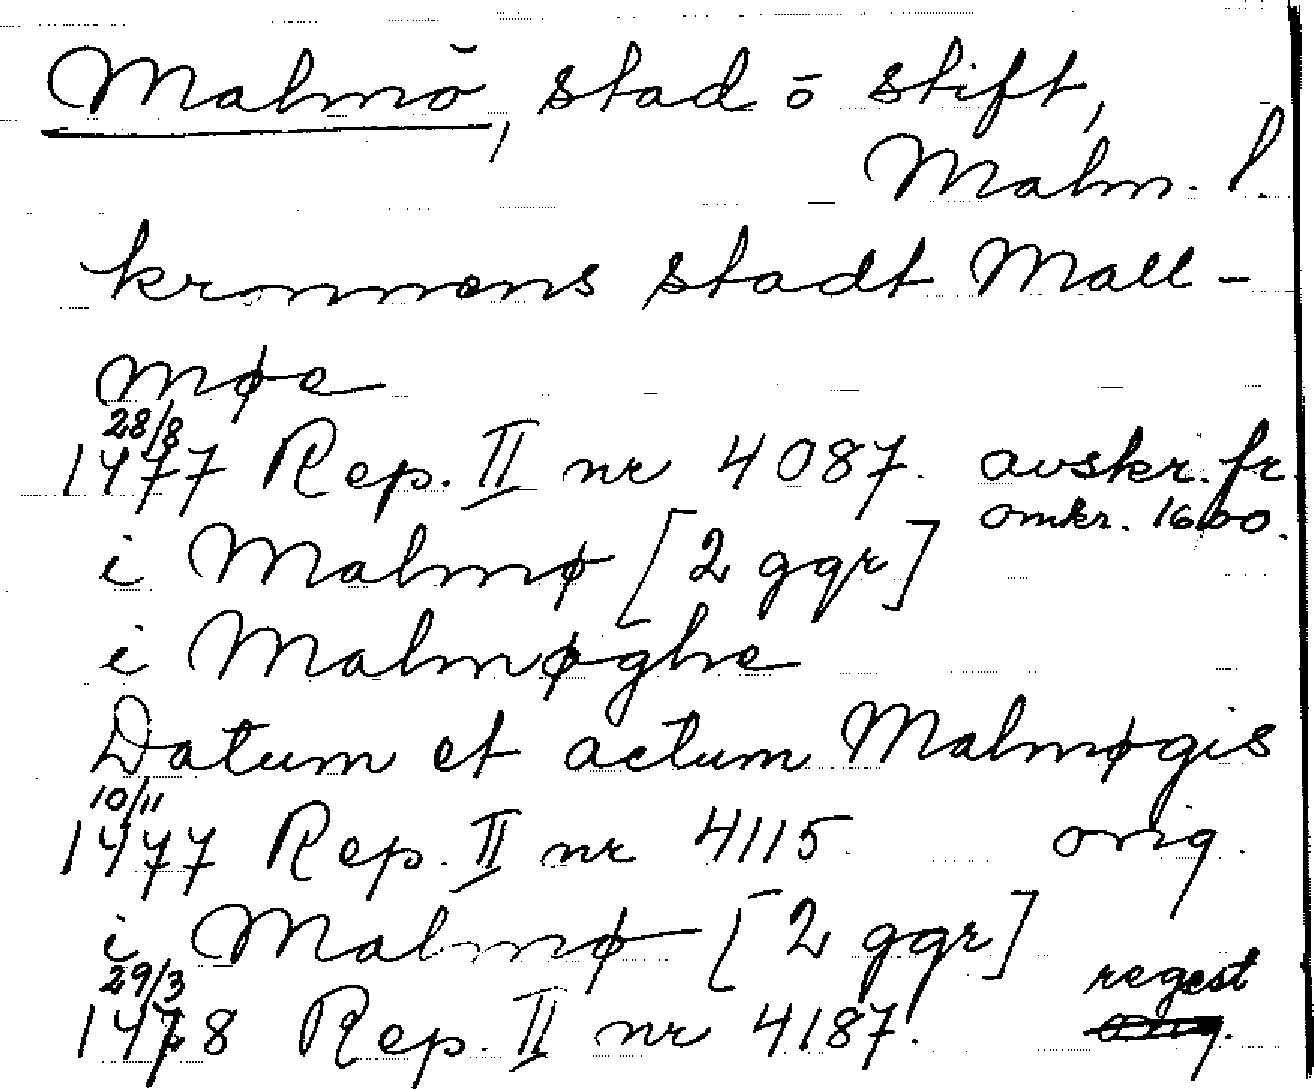 Malmö, stad o stift,
Malm. l.
kronnens stadt Mall-
møe
28/8
1477 Rep. II nr 4087. avskr. fr.
omkr. 1600.
i Malmø [2 ggr]
i Malmøghe
Datum et actum Malmøgis
10/11
1477 Rep. II nr 4115 orig.
i Malmø [2 ggr]
29/3 regest
1478 Rep. II nr 4187.